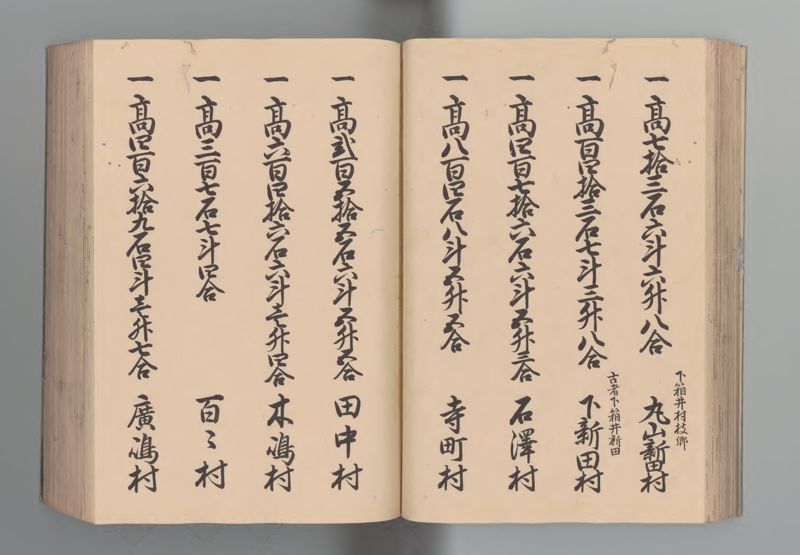 一 高七拾三石六斗六升八合
下箱井村枝郷
丸山新田村
一 高百四拾三石七斗三升八合
古者下箱井新田
下新田村
一 高四百七拾六石六斗五升三合 石澤村
一 高八百四石八斗五升五合 寺町村
一 高弐百五拾五石六斗五升五合 田中村
一 高六百四拾六石六斗壱升四合 木嶋村
一 高三百七石七斗四合 百々村
一 高四百六拾九石四斗壱升七合 廣嶋村